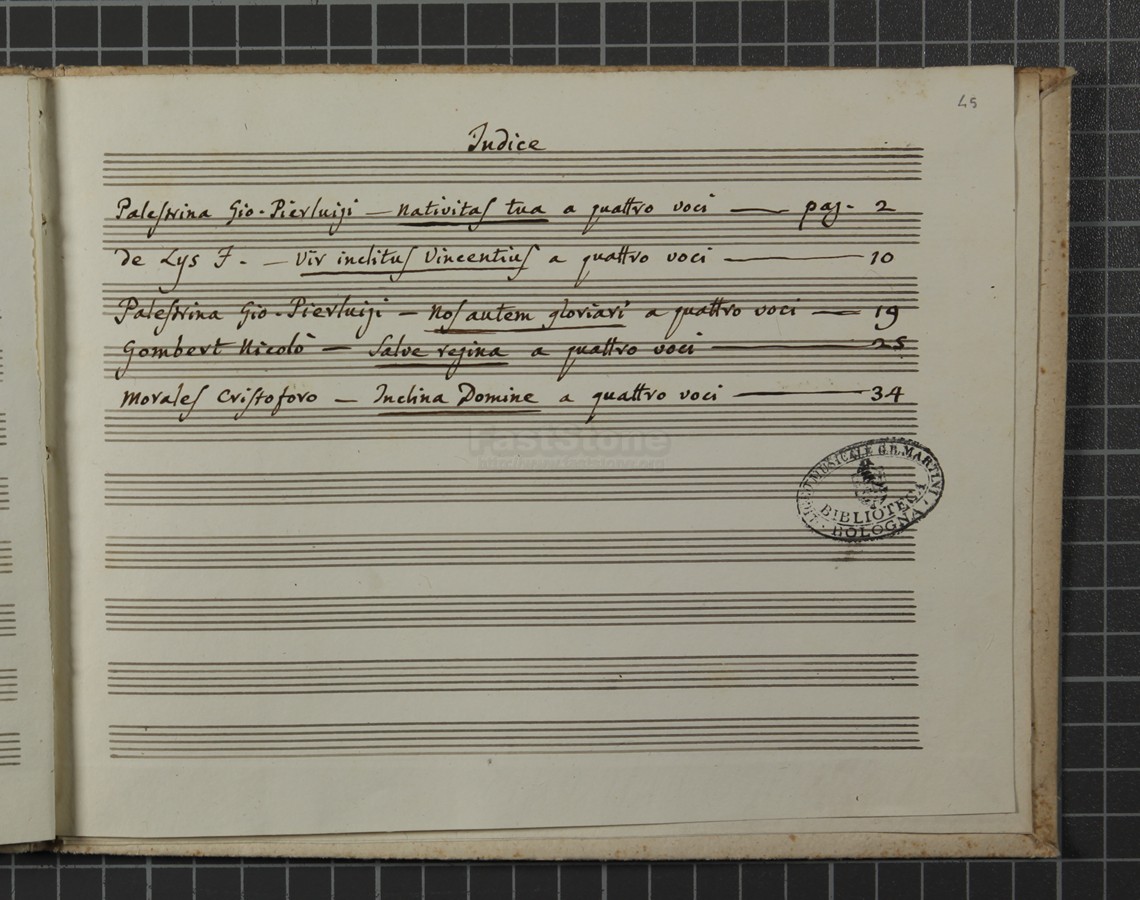 45
Indice
Palestrina Gio-Pierluigi — Nativitas tua a quattro voci — pag. 2
de Lys F. — Vir inclitus Vincentius a quattro voci — 10
Palestrina Gio-Pierluigi — Nos autem gloriari a quattro voci — 19
Gombert Nicolò — Salve regina a quattro voci — 25
Morales Cristoforo — Inclina Domine a quattro voci — 34
FastStone
MUSICALE G.B. MARTINI
BIBLIOTECA
BOLOGNA